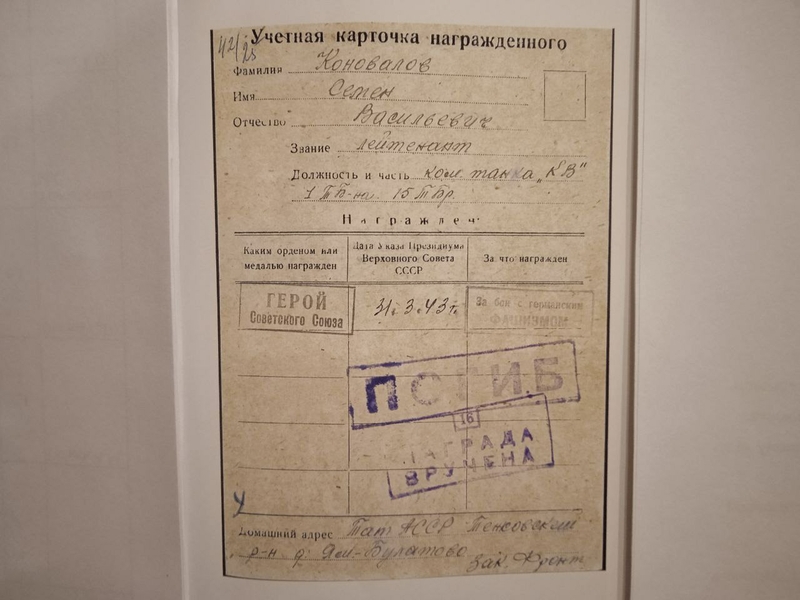 42/25
Учетная карточка награжденного
Фамилия Коновалов
Имя Семен
Отчество Васильевич
Звание лейтенант
Должность и часть ком. танка „КВ"
1 ТБ-на 15 ТБр.
Награжден:
Каким орденом или
медалью награжден
Дата Указа Президиума
Верховного Совета
СССР
За что награжден
ГЕРОЙ
Советского Союза
31.3.43г.
За бои с германским
фашизмом
ПОГИБ
16
НАГРАДА
ВРУЧЕНА
Домашний адрес Тат АССР
р-н д. Ям-Булатово
Зак. Фронт